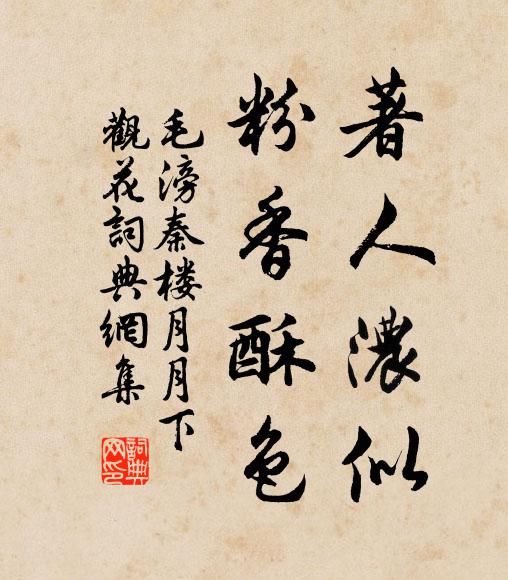 著人濃似
粉香酥色
毛滂秦楼月月下
觀花詞典網集
詞典
网印